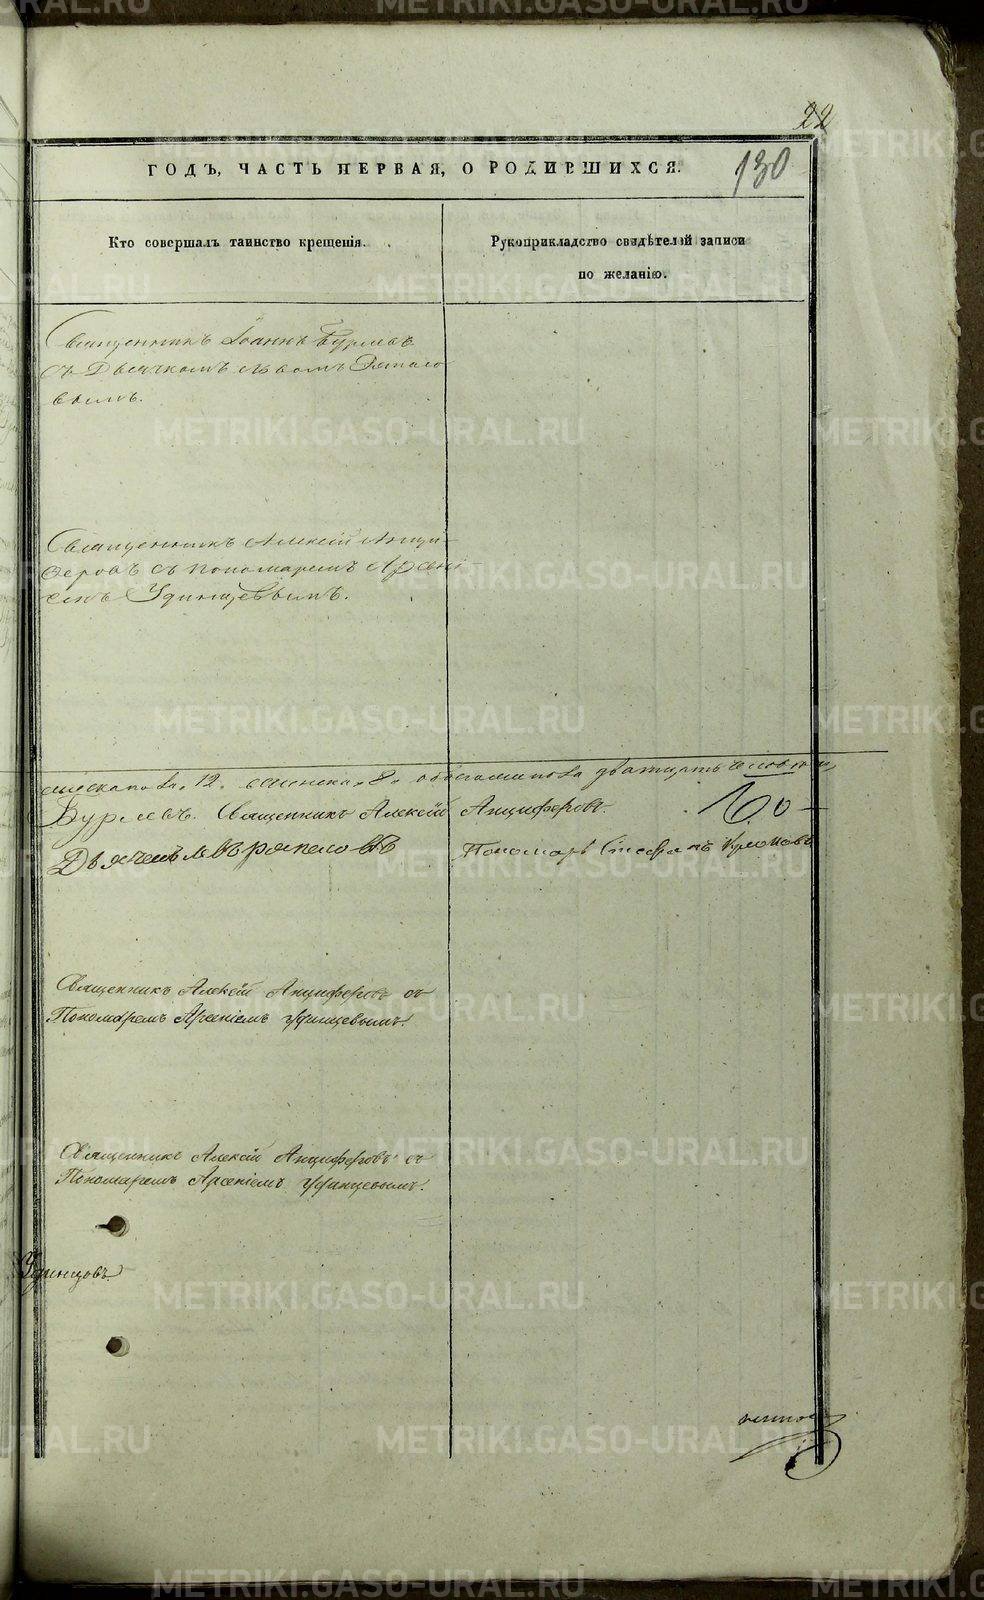 22
ГОДЪ, ЧАСТЬ ПЕРВАЯ, О РОДИВШИХСЯ.
130
Кто совершалъ таинство крещенія.
Рукоприкладство свидѣтелей записи
по желанію.
Священникъ Іоаннъ Бурлевъ
съ Дьячкомъ
вымъ.
Священникъ Алексій Анци-
феровъ съ пономаремъ Арсені-
емъ Удинцевымъ.
12. женска 8. обоего пола двадцать человѣкъ
Бурлевъ. Священникъ Алексій Анциферовъ.
Дьячекъ
Пономарь
Священникъ Алексій Анциферовъ съ
Пономаремъ Арсеніемъ Удинцевымъ.
Священникъ Алексій Анциферовъ съ
Пономаремъ Арсеніемъ Удинцевымъ.
Удинцовъ
METRIKI.GASO-URAL.RU